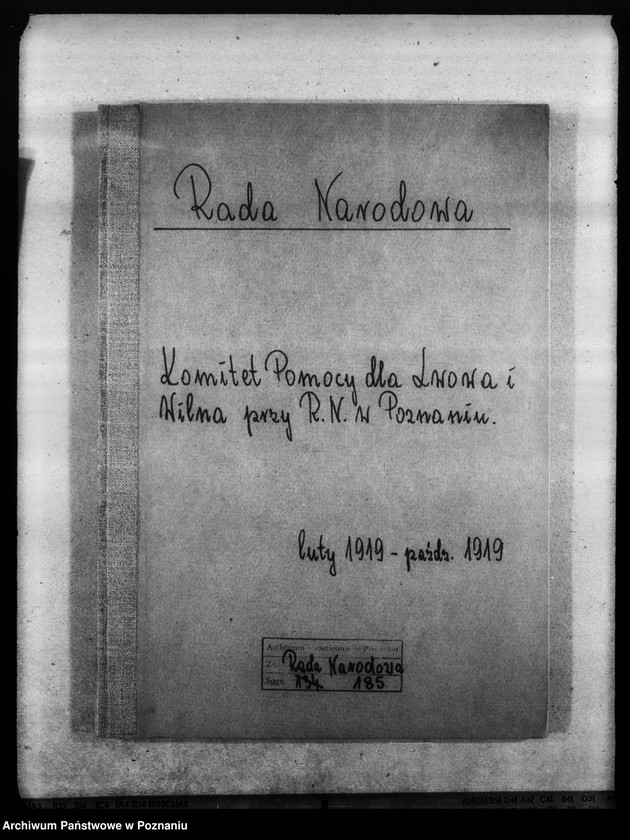 Rada Narodowa
Komitet Pomocy dla Lwowa i
Wilna przy R.N. w Poznaniu.
luty 1919 - paźdz. 1919
Archiwum w Poznaniu
Rada Narodowa
Sygn. 134 185
Archiwum Państwowe w Poznaniu